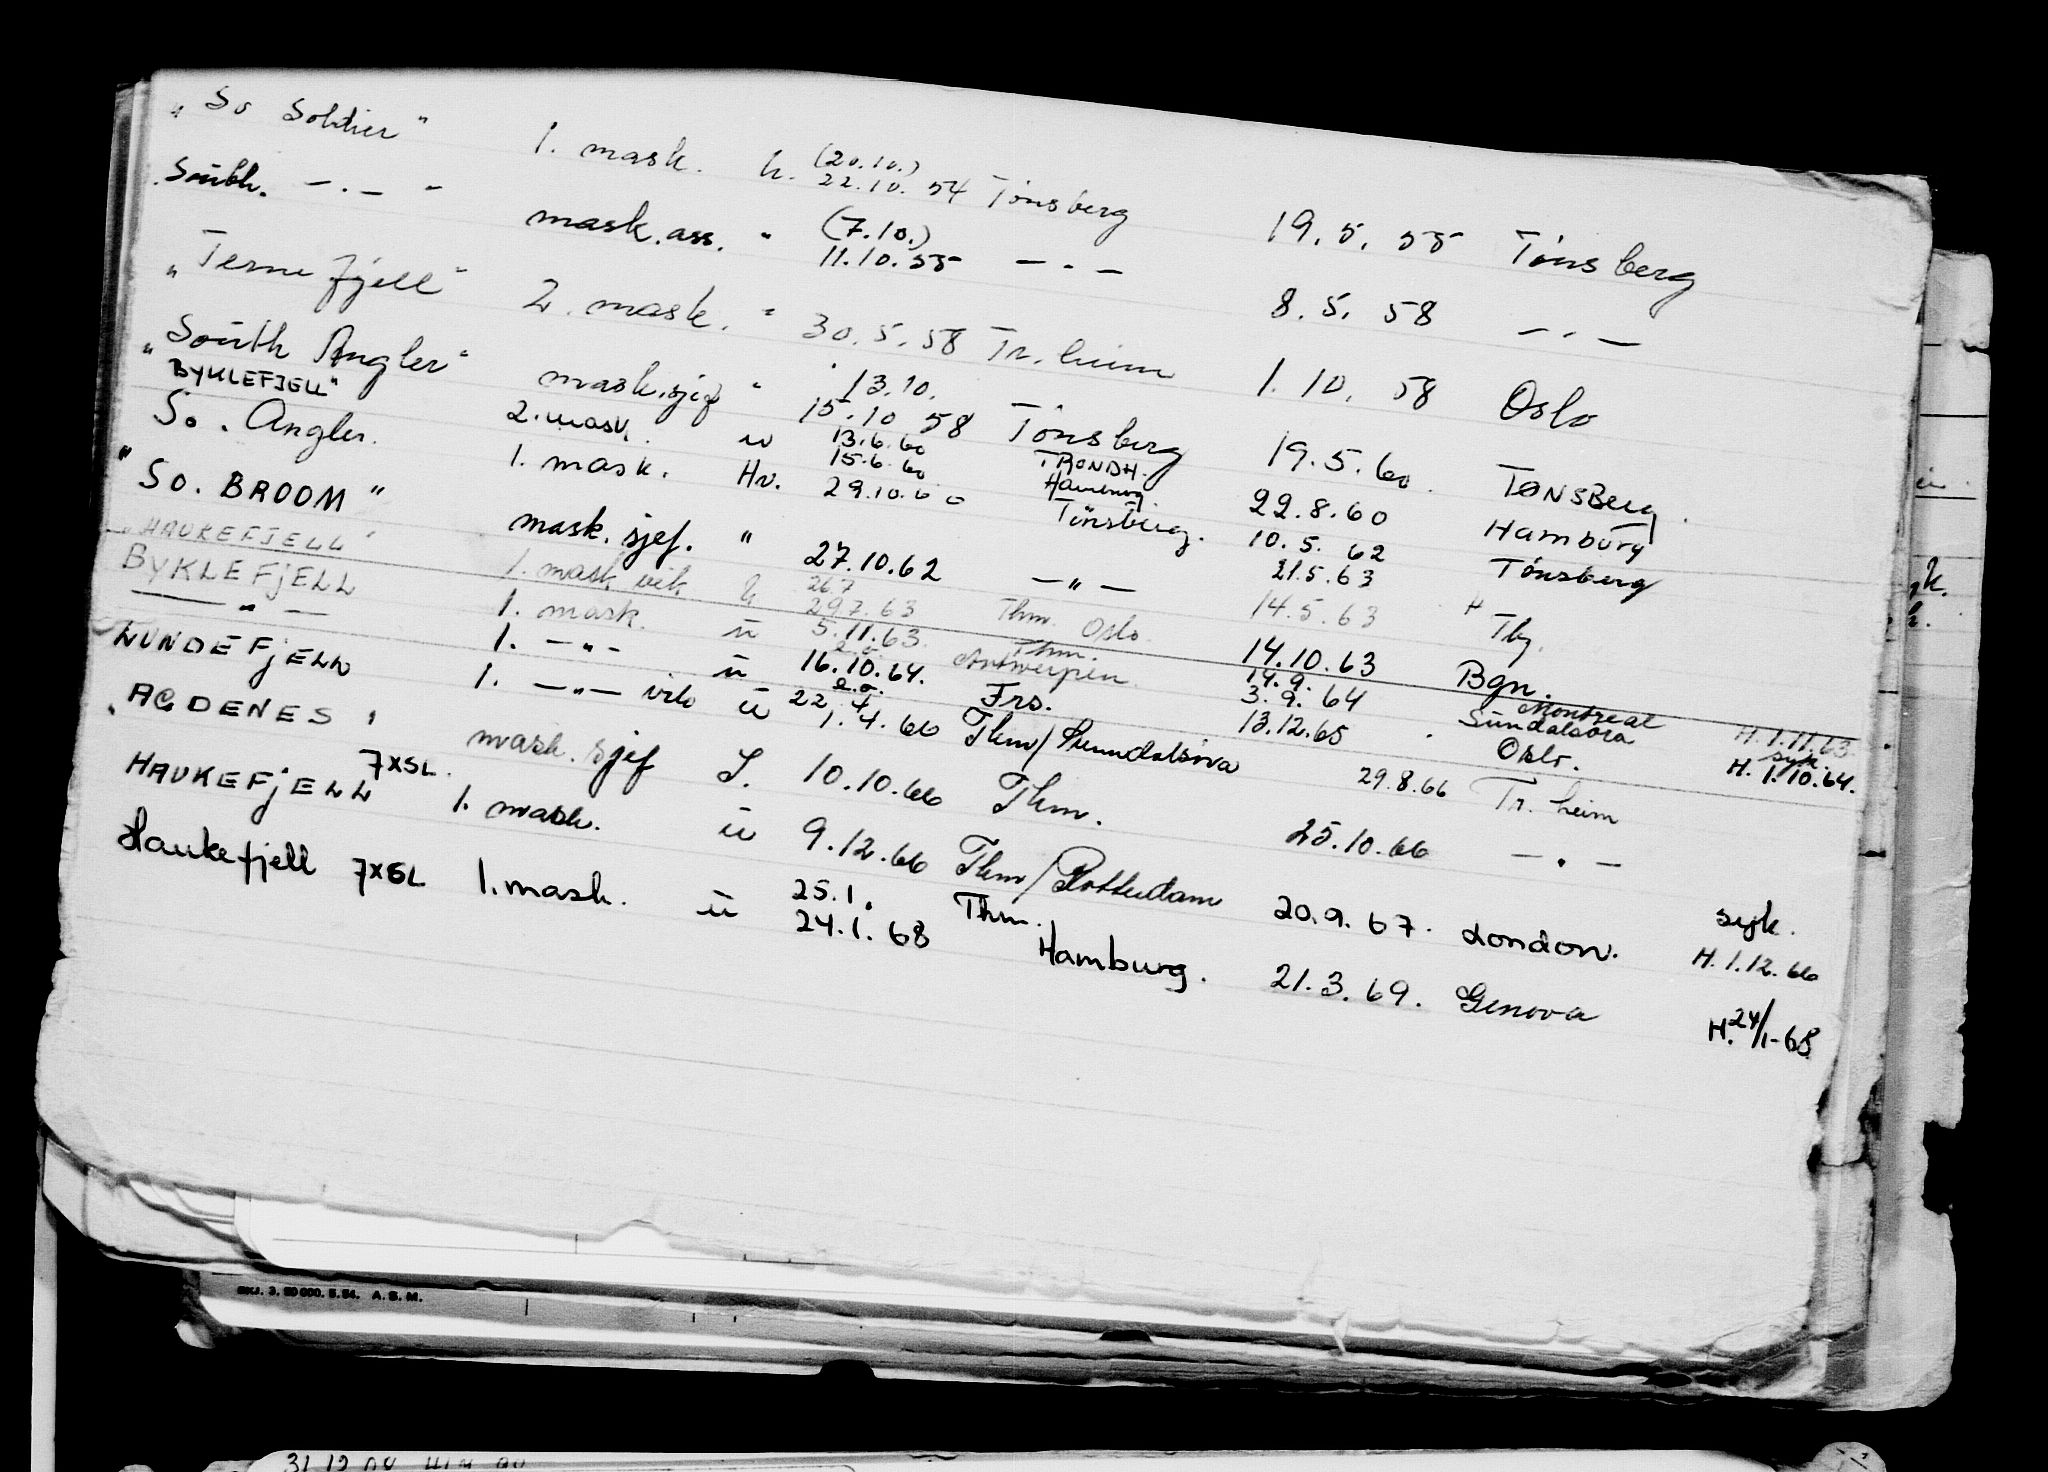 "So Soldier" 1. mask. h. (20.10.) 22.10. 54 Tönsberg 19.5.55 Tönsberg
South. — . — " mask.ass. " (7.10.) 11.10.55 — . — 8.5.58 — . —
"Ternefjell" 2. mask. " 30.5.58 Tr.heim 1.10.58 Oslo
"South Angler" mask.sjef " 13.10. 15.10 58 Tönsberg 19.5.60. TØNSBerg.
"BYKLEFJELL" 2. mask. u 13.6.60 15.6.60 TRONDH. Hamburg 22.8.60 Hamburg
So. Angler. 1. mask. Hv. 29.10.60 Tönsberg. 10.5.62 Tönsberg
"SO. BROOM" mask.sjef. " 27.10.62 — " — 21.5.63 14.5.63 " Tbg.
"HAUKEFJELL" 1. mask vik u 26.7 29.7.63 Thm. Oslo. 14.10.63 Bgn.
BYKLEFJELL 1. mask. u 5.11.63. Thm. Antwerpen. 14.9. 3.9.64 Montreal Sundalsöra H. 1.11.63.
— " — 1. — " — u e.o. 16.10.64. Frs. 13.12.65 . Oslo. syk. H. 1.10.64.
LUNDEFJELL 1. — " — vik u e.o. 22.4. 1.4.66 Thm/Sunndalsöra 29.8.66 Tr.heim
"AGDENES" mask.sjef S. 10.10.66 Thm. 25.10.66 — . —
HAUKEFJELL 7XSL. 1. mask. u 9.12.66 Thm/Rotterdam 20.9.67. London. syk. H. 1.12.66
Haukefjell 7XSL 1. mask. u 25.1. 24.1.68 Thm. Hamburg. 21.3.69. Genova H. 24/1-68
SKJ. 3. 50 000. 5.54. A.S.M.